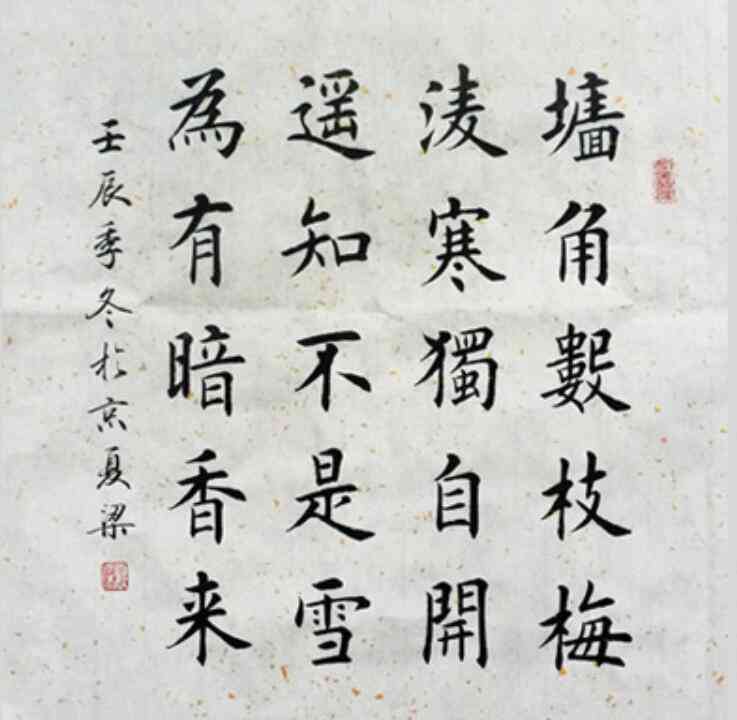 墙角數枝梅
淩寒獨自開
遥知不是雪
為有暗香来
壬辰季冬於京夏梁